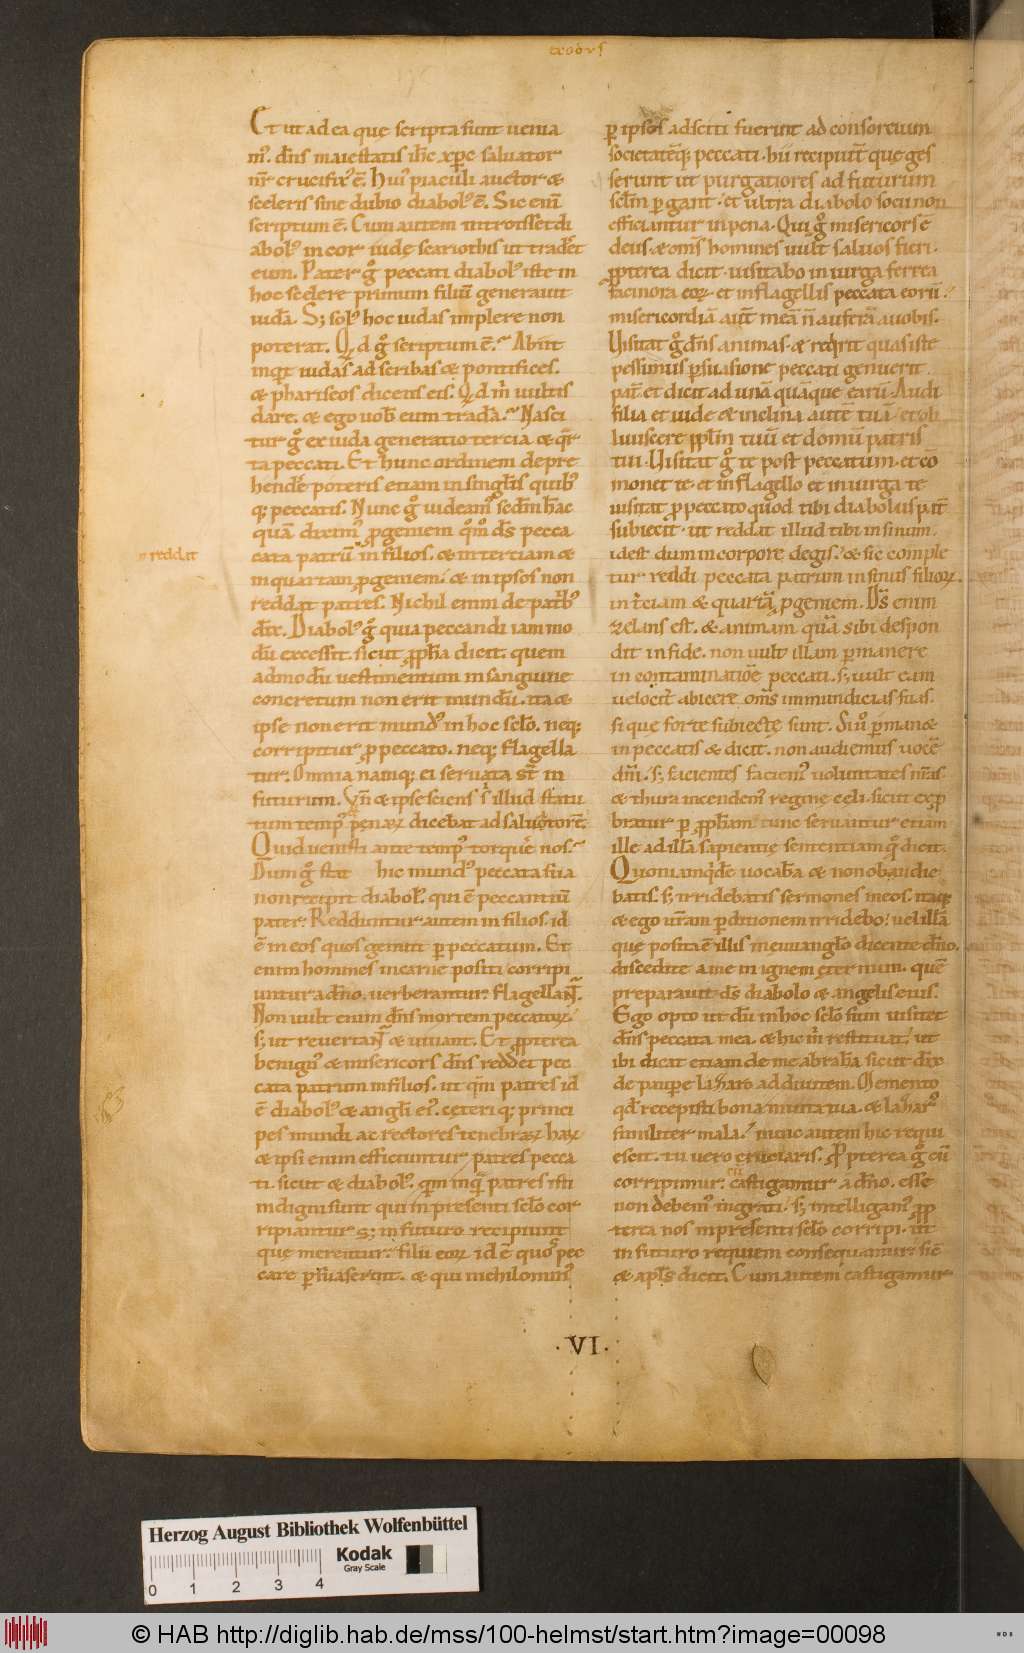 exodus
Et ut ad ea quę scripta sunt uenia
mꝰ. dn̄s maiestatis ih̄c xp̄c saluator
nr̄ crucifixꝰ ē. Huiꝰ piaculi auctor &
sceleris sine dubio diabolꝰ ē. Sic eni̅
scriptum ē. Cum autem introisset di
abolꝰ in cor iudę scariothis ut trader&
eum. Pater gͦ peccati diabolꝰ iste in
hoc scelere primum filiu̅ generauit
iuda̅. S; solꝰ hoc iudas implere non
poterat. Qd gͦ scriptum ē. Abiit
inquit iudas ad scribas & pontifices.
& phariseos dicens eis. Qd m̅ uultis
dare. & ego uob̅ eum trada̅. Nasci
tur gͦ ex iuda generatio tercia & qr̄
ta peccati. Et hunc ordinem depre
hendere poteris etiam in singlis̄ quibꝰ
q; peccatis. Nunc gͦ uideamꝰ sed̅m hac
qua̅ diximꝰ ꝓgeniem qm̅o ds̄ pecca
cata patru̅ in filios. & in terciam &
reddat
in quartam ꝓgeniem. & in ipsos non
reddat patres. Nichil enim de patribꝰ
dix̅. Diabolꝰ gͦ quia peccandi iam mo
du̅ excessit. sicut ꝓph̄a dicit. quem
admodu̅ uestimentum in sanguine
concretum non erit mundu̅. ita &
ipse non erit mundꝰ in hoc sclo̅. neq;
corripitur ꝓ peccato. neq; flagella
tur. Omnia namq; ei seruata st̄ in
futurum. Vn̄ & ipse sciens s illud statu
tum tempꝰ penaꝝ dicebat ad saluatore̅.
Quid uenisti ante tempꝰ torquere nos.
Dum gͦ stat hic mundꝰ peccata sua
non recipit diabolꝰ. qui ē peccantiu̅
pater. Redduntur autem in filios. id
ē in eos quos genuit per peccatum. Et
enim homines in carne positi corripi
untur a dn̄o. uerberantur. flagellant̅.
Non uult enim dn̄s mortem peccatoꝝ.
s; ut reuertant̅ & uiuant. Et ꝓpterea
benignꝰ & misericors dn̄s reddet pec
cata patrum in filios. ut qm̅ patres id
ē diabolꝰ & angli̅ eiꝰ. ceteri q; princi
pes mundi ac rectores tenebraꝝ haꝝ
& ipsi enim efficiuntur patres pecca
ti. sicut & diabolꝰ. qm̅ inq̅ patres isti
indigni sunt qui in presenti sclo̅ cor
ripiantur s; in futuro recipiunt
quę merentur. filii eoꝝ id ē quos pec
care persuaserunt. & qui nichilominꝰ
per ipsos adsciti fuerint ad consortium
societate̅q; peccati. hii recipiunt que ges
serunt ut purgatiores ad futurum
sclm̅ pergant. et ultra diabolo socii non
efficiantur in pena. Qui gͦ misericors ē
deus. & oms̄ homines uult saluos fieri.
ꝓpterea dicit. uisitabo in uirga ferrea
facinora eoꝝ. et in flagellis peccata eoru̅.
misericordia̅ aut̅ mea̅ n̄ auferam a uobis.
Uisitat gͦ dn̄s animas. & requirit quas iste
pessimus persuasione peccati genuerit
pat̅. et dicit ad una̅ qua̅que earu̅. Audi
filia et uide & inclina aure̅ tua̅. et ob
liuiscere ppl̄m tuu̅ et domu̅ patris
tui. Uisitat gͦ te post peccatum. et co̅
monet te. et in flagello et in uirga te
uisitat ꝓ peccato quod tibi diabolus pat̅
subiecit. ut reddat illud tibi in sinum.
id est dum in corpore degis. & sic comple
tur reddi peccata patrum in sinus filioꝝ.
in terciam & quarta̅ ꝓgeniem. Ds̄ enim
zelans est. & animam qua̅ sibi despon
dit in fide. non uult illam permanere
in contaminatio̅e peccati. s; uult eam
uelocit̅ abicere oms̄ inmundicias suas.
si que forte subiectę sunt. Si u̅ permane&
in peccatis & dicit. non audiemus uoce̅
dn̄i. s; facientes faciemꝰ uoluntates nr̄as
& thura incendemꝰ reginę celi. sicut exp
bratur per ꝓph̄am. tunc seruantur etiam
ille ad illa̅ sapientię sententiam q̅ dicit.
Quoniam quide̅ uocaba̅ & non obaudie
batis. s; irridebatis sermones meos. itaq;
& ego ur̄am perditionem irridebo. uel illa̅
quę posita ē illis in euuanglo̅ dicente dn̄o.
discedite a me in ignem ęternum. que̅
preparauit ds̄ diabolo & angelis eius.
Ego opto ut du̅ in hoc sclo̅ sum uisitet
dn̄s peccata mea. & hic m̅ restituat. ut
ibi dicat etiam de me abraha̅ sicut dix̅
de paupere lazaro ad diuitem. Memento
qd̅ recepisti bona in uita tua. & lazarꝰ
similiter mala. nunc autem hic requi
escit. tu uero cruciaris. Propterea gͦ cu̅
corripimur. cu̅ castigamur a dn̄o. esse
non debemꝰ ingrati. s; intelligamꝰ ꝓp
terea nos in presenti sclo̅ corripi. ut
in futuro requiem consequamur. sic̅
& apls̄ dicit. Cum autem castigamur
·VI·
Herzog August Bibliothek Wolfenbüttel
Kodak
Gray Scale
0 1 2 3 4
© HAB http://diglib.hab.de/mss/100-helmst/start.htm?image=00098